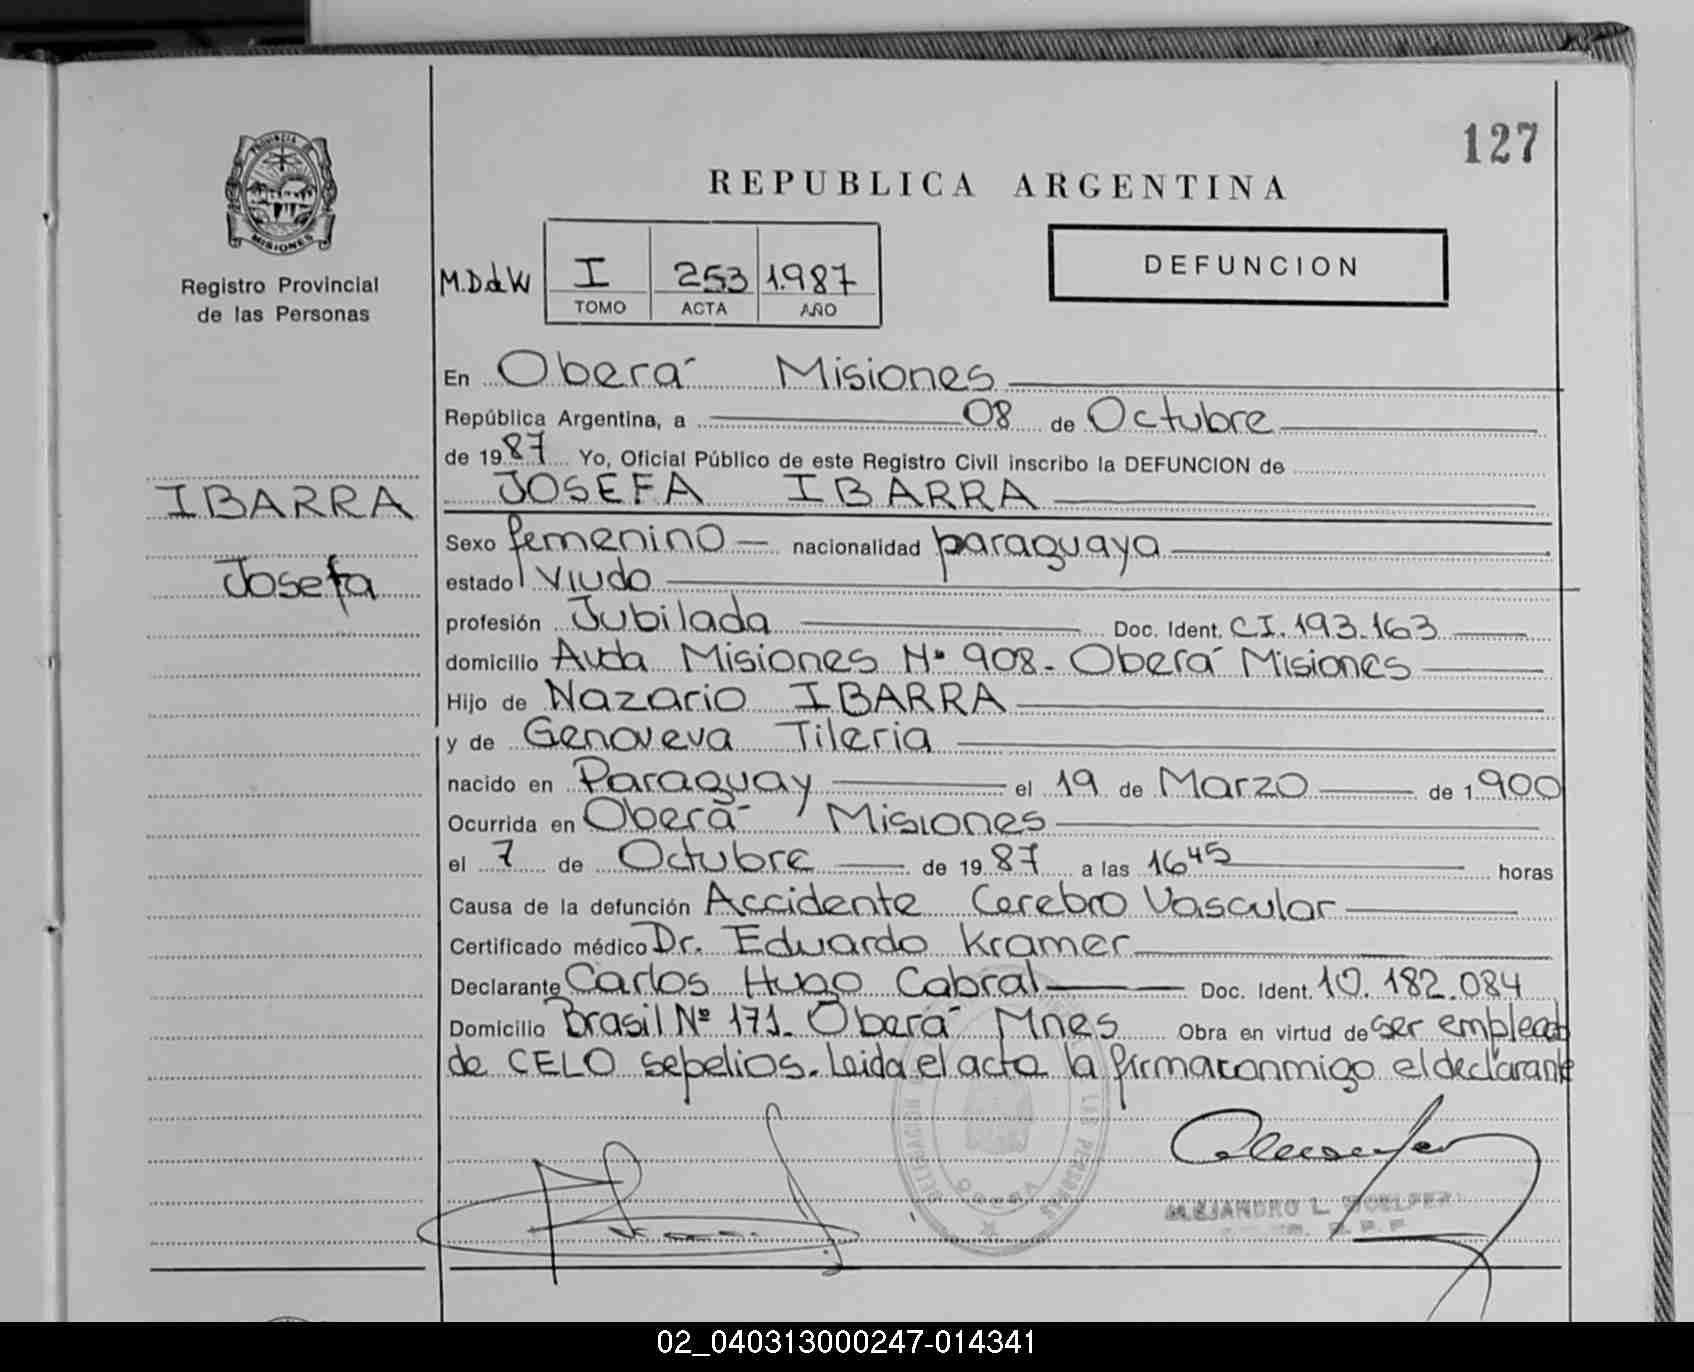 127
PROVINCIA DE
MISIONES
Registro Provincial
de las Personas
REPUBLICA ARGENTINA
M.D.d.W I 253 1.987
TOMO ACTA AÑO
DEFUNCION
En Oberá Misiones
República Argentina, a 08 de Octubre
de 1987 Yo, Oficial Público de este Registro Civil inscribo la DEFUNCION de
IBARRA
JOSEFA IBARRA
Josefa
Sexo femenino nacionalidad paraguaya
estado viudo
profesión Jubilada Doc. Ident. CI. 193.163
domicilio Avda Misiones Nº 908. Oberá Misiones
Hijo de Nazario IBARRA
y de Genoveva Tileria
nacido en Paraguay el 19 de Marzo de 1900
Ocurrida en Oberá Misiones
el 7 de Octubre de 1987 a las 16 45 horas
Causa de la defunción Accidente Cerebro Vascular
Certificado médico Dr. Eduardo Kramer
Declarante Carlos Hugo Cabral Doc. Ident. 10.182.084
Domicilio Brasil Nº 171. Oberá Mnes Obra en virtud de ser empleado
de CELO sepelios. Leida el acta la firma conmigo el declarante
ALEJANDRO L.
02_040313000247-014341